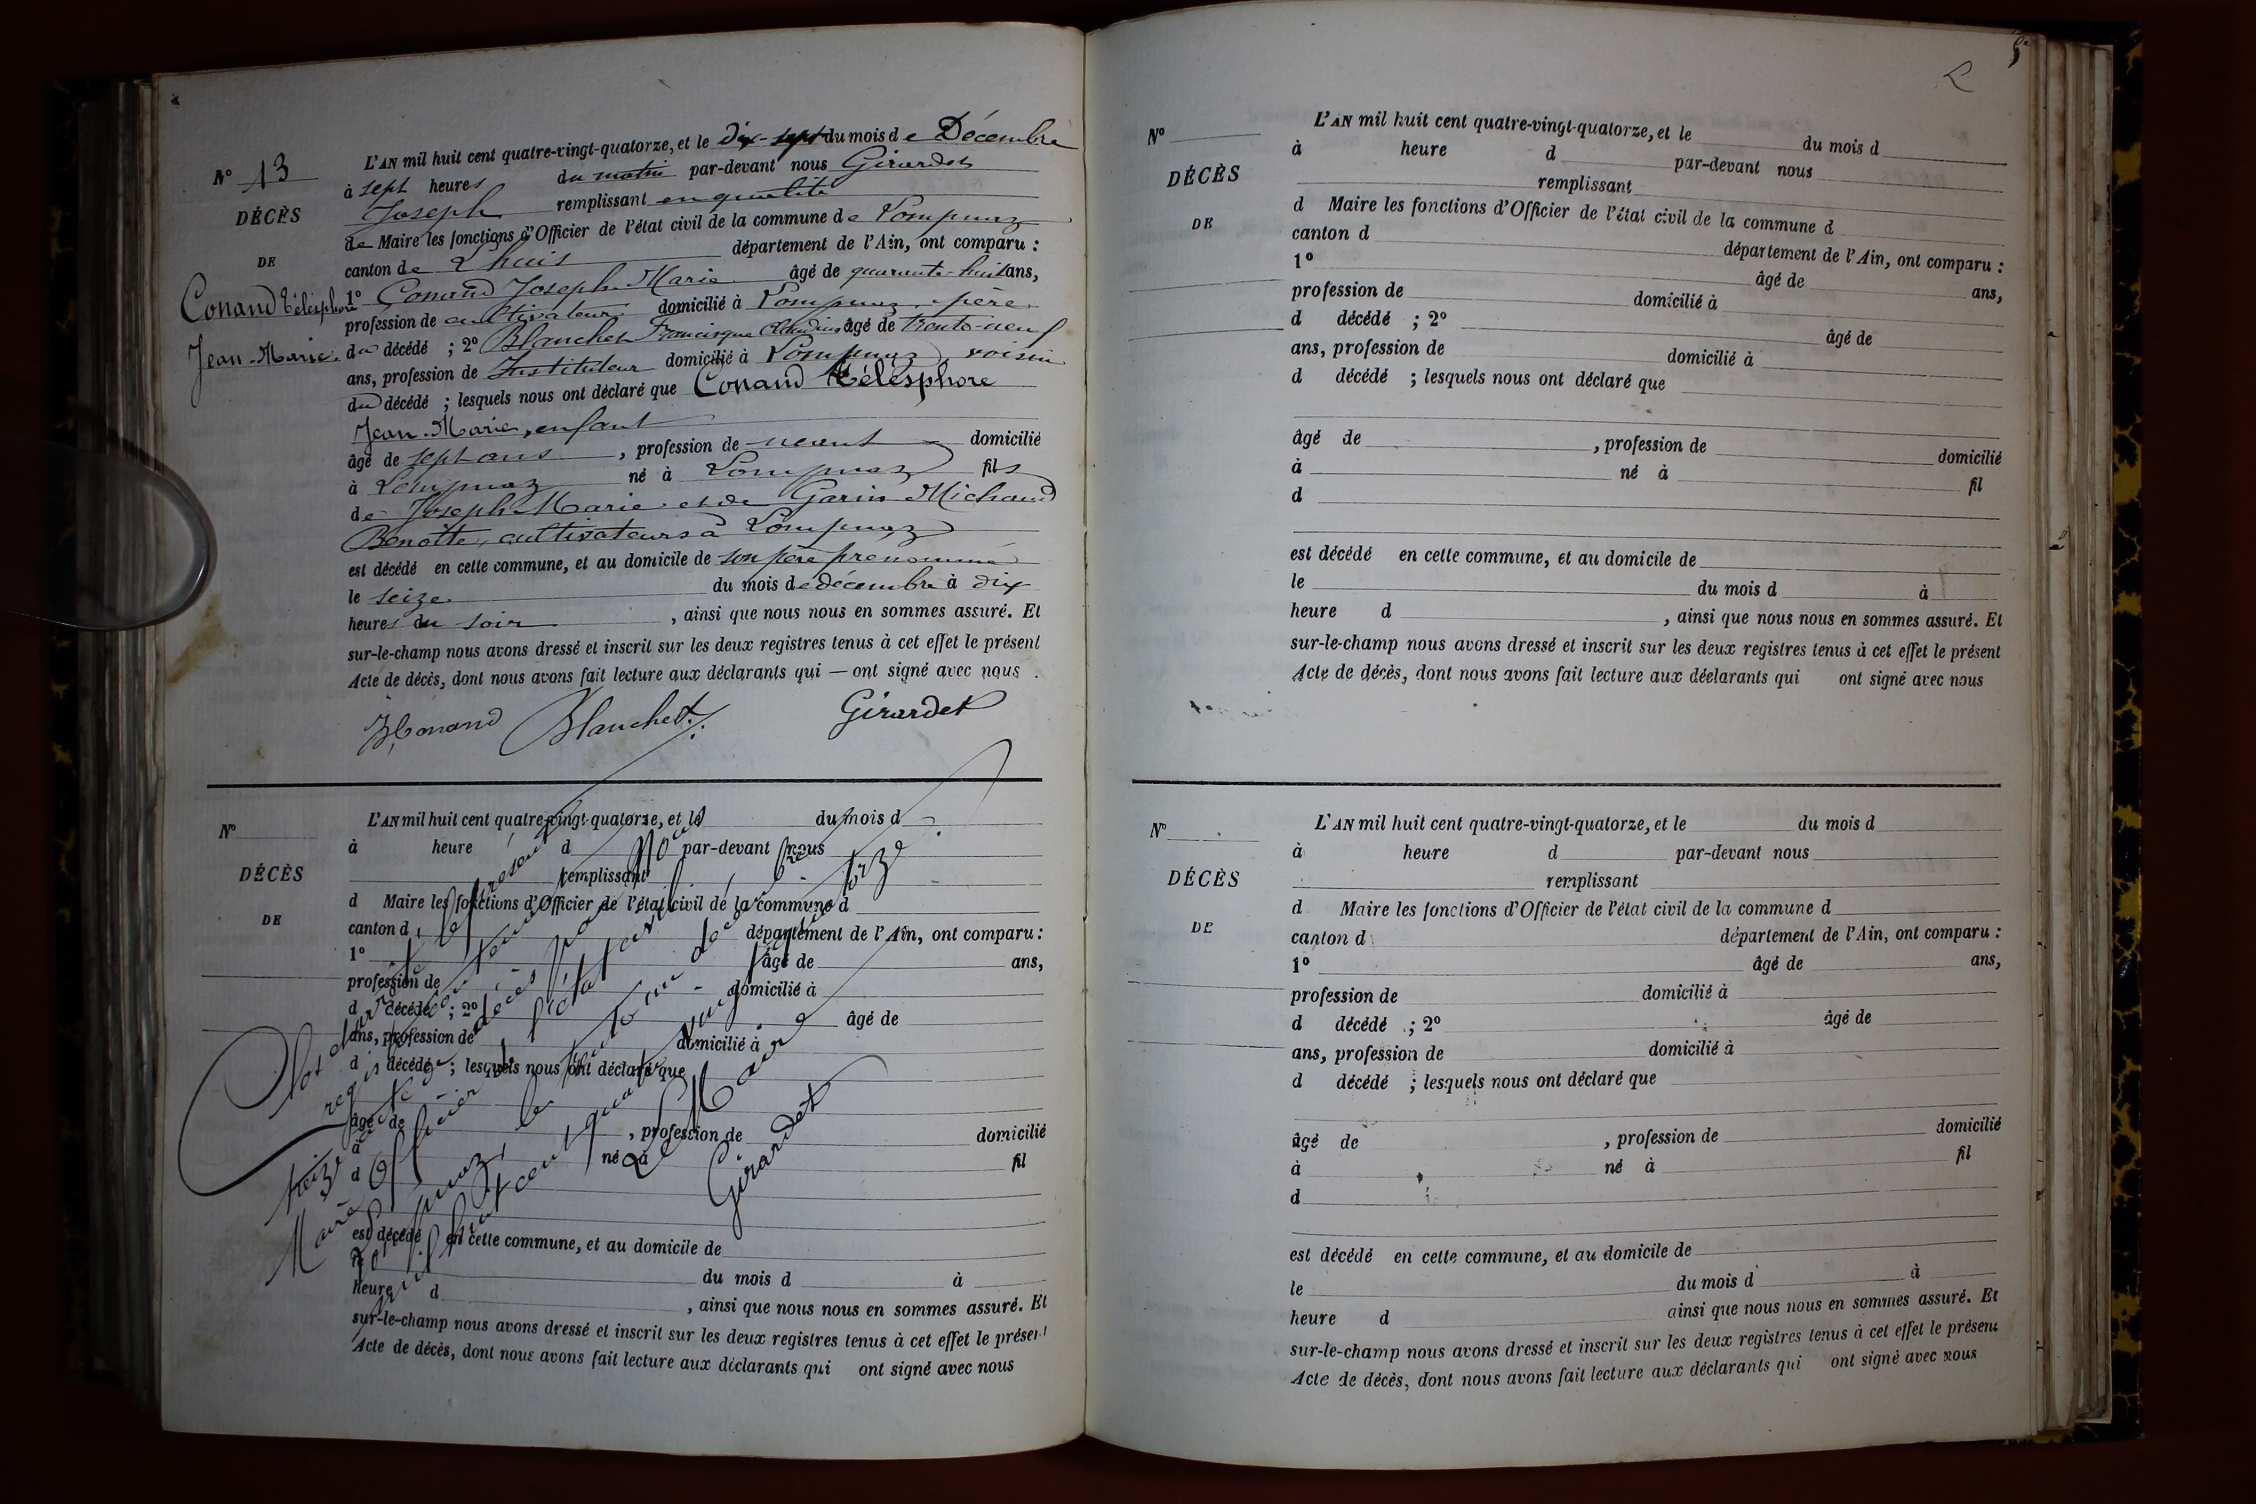 N° 13
DÉCÈS
DE
Conand Télésphore
Jean-Marie
L'AN mil huit cent quatre-vingt-quatorze, et le dix-sept du mois de Décembre
à sept heures du matin par-devant nous Girardet
Joseph remplissant en qualité
de Maire les fonctions d'Officier de l'état civil de la commune de Lompnaz
canton de Lhuis département de l'Ain, ont comparu :
1° Conand Joseph-Marie âgé de quarante-huit ans,
profession de cultivateur domicilié à Lompnaz, père
du décédé ; 2° Blanchet Francisque Claudius âgé de trente-neuf
ans, profession de Instituteur domicilié à Lompnaz, voisin
du décédé ; lesquels nous ont déclaré que Conand Télésphore
Jean-Marie, enfant
âgé de sept ans , profession de néant domicilié
à Lompnaz né à Lompnaz fils
de Joseph-Marie et de Garin-Michaud
Benoîte, cultivateurs à Lompnaz
est décédé en cette commune, et au domicile de son père prénommé
le seize du mois de décembre à dix
heures du soir , ainsi que nous nous en sommes assuré. Et
sur-le-champ nous avons dressé et inscrit sur les deux registres tenus à cet effet le présent
Acte de décès, dont nous avons fait lecture aux déclarants qui — ont signé avec nous .
Conand Blanchet Girardet
N°
DÉCÈS
DE
L'AN mil huit cent quatre-vingt-quatorze, et le du mois d
à heure d par-devant nous
remplissant
d Maire les fonctions d'Officier de l'état civil de la commune d
canton d département de l'Ain, ont comparu :
1° âgé de ans,
profession de domicilié à
d décédé ; 2° âgé de
ans, profession de domicilié à
d décédé ; lesquels nous ont déclaré que
âgé de , profession de domicilié
à né à fil
d
est décédé en cette commune, et au domicile de
le du mois d à
heure d , ainsi que nous nous en sommes assuré. Et
sur-le-champ nous avons dressé et inscrit sur les deux registres tenus à cet effet le présent
Acte de décès, dont nous avons fait lecture aux déclarants qui ont signé avec nous
Clos et arrêté le présent
registre contenant
treize actes de décès par nous
Maire Officier de l'état civil de
Lompnaz, le trente un décembre
mil huit cent quatre vingt quatorze
Le Maire
Girardet
N°
DÉCÈS
DE
L'AN mil huit cent quatre-vingt-quatorze, et le du mois d
à heure d par-devant nous
remplissant
d Maire les fonctions d'Officier de l'état civil de la commune d
canton d département de l'Ain, ont comparu :
1° âgé de ans,
profession de domicilié à
d décédé ; 2° âgé de
ans, profession de domicilié à
d décédé ; lesquels nous ont déclaré que
âgé de , profession de domicilié
à né à fil
d
est décédé en cette commune, et au domicile de
le du mois d à
heure d , ainsi que nous nous en sommes assuré. Et
sur-le-champ nous avons dressé et inscrit sur les deux registres tenus à cet effet le présent
Acte de décès, dont nous avons fait lecture aux déclarants qui ont signé avec nous
N°
DÉCÈS
DE
L'AN mil huit cent quatre-vingt-quatorze, et le du mois d
à heure d par-devant nous
remplissant
d Maire les fonctions d'Officier de l'état civil de la commune d
canton d département de l'Ain, ont comparu :
1° âgé de ans,
profession de domicilié à
d décédé ; 2° âgé de
ans, profession de domicilié à
d décédé ; lesquels nous ont déclaré que
âgé de , profession de domicilié
à né à fil
d
est décédé en cette commune, et au domicile de
le du mois d à
heure d ainsi que nous nous en sommes assuré. Et
sur-le-champ nous avons dressé et inscrit sur les deux registres tenus à cet effet le présent
Acte de décès, dont nous avons fait lecture aux déclarants qui ont signé avec nous